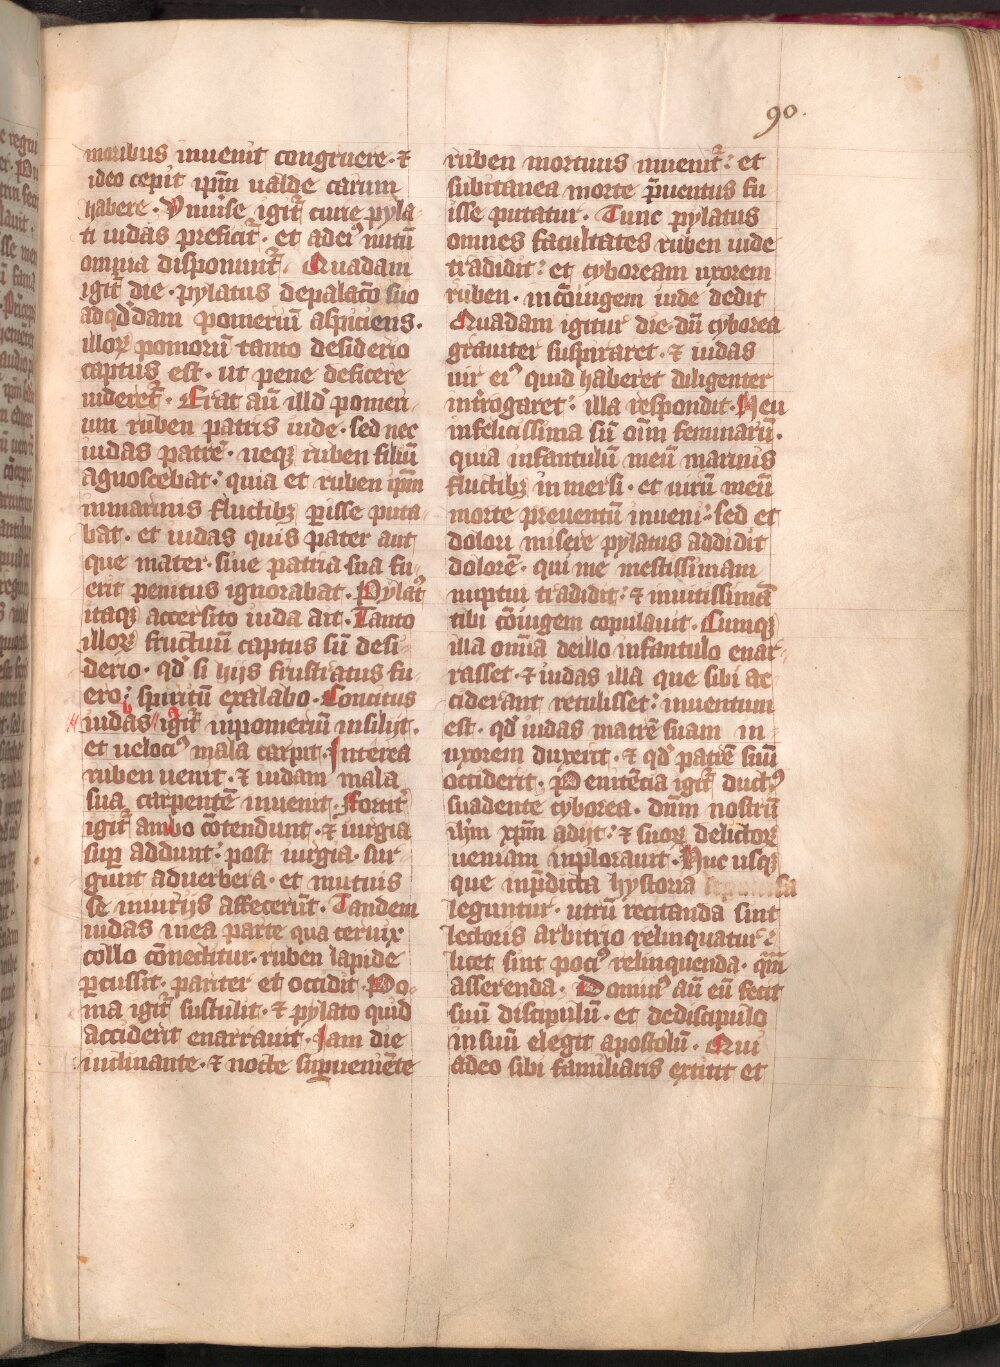 90.
moribus inuenit congruere · ⁊
ideo cepit ip̄m ualde carum
habere · Vniuise igit᷑ curie pyla-
ti iudas preficit᷑ · et ad eiꝰ nutū
omnia disponunt᷑. Quadam
igit᷑ die · pylatus de palac̄o suo
ad qd̓dam pomeriū aspiciens.
illoꝝ pomorū tanto desiderio
captus est · ut pene deficere
uideret᷑ · Erat aū illd̓ pomeri-
um ruben patris iude · sed nec
iudas patrē · neqꝫ ruben filiū
agnoscebat : quia et ruben ip̄m
in marinis fluctibꝫ ꝑisse puta-
bat · et iudas quis pater aut
que mater · siue patria sua fu-
erit penitus ignorabat · Pylatꝰ
itaqꝫ accersito iuda ait · Tanto
illoꝝ fructuū captus sū desi-
derio · qd̓ si hijs frustratus fu-
ero : spiritū exalabo · Concitus
iudas igit᷑ in pomeriū insilijt.
et uelociꝰ mala carpit · Interea
ruben uenit · ⁊ iudam mala
sua carpentē inuenit · Fortit᷑
igit᷑ ambo c̄otendunt · ⁊ iurgia
suꝑ addunt : post iurgia · sur-
gunt ad uerbera · et mutuis
se iniurijs affecerūt · Tandem
iudas in ea parte qua ceruix
collo c̄onectitur · ruben lapide
ꝑcussit · pariter et occidit · Po-
ma igit᷑ sustulit · ⁊ pylato quid
acciderit enarrauit · Iam die
inclinante · ⁊ nocte suꝑueniēte
ruben mortuus inuenit᷑ : et
subitanea morte p̄uentus fu
isse putatur · Tunc pylatus
omnes facultates ruben iude
tradidit : et cyboream uxorem
ruben · in c̄oiugem iude dedit
Quadam igitur die · dū cyborea
grauiter suspiraret · ⁊ iudas
uir eiꝰ quid haberet diligenter
int̓rogaret : illa respondit · Heu
infelicissima sū oīm feminarū.
quia infantulū meū marinis
fluctibꝫ in mersi · et uirū meū
morte preuentū inueni : sed et
dolori misere pylatus addidit
dolorē · qui me mestissimam
nuptui tradidit : ⁊ inuitissimā
tibi c̄oiugem copulauit · Cumqꝫ
illa om̄ia de illo infantulo enar-
rasset · ⁊ iudas illa que sibi ac-
ciderant retulisset : inuentum
est · qd̓ iudas matrē suam in
uxorem duxerit · ⁊ qd̓ patrē suū
occiderit · Penitēcia igit᷑ ductꝰ
suadente cyborea · dn̄m nostrū
ih̄m xp̄m adijt : ⁊ suoꝝ delictoꝝ
ueniam inplorauit · Huc usqꝫ
que in p̄dicta hystoria
leguntur · utrū recitanda sint
lectoris arbitrio relinquatur :
licet sint pociꝰ relinquenda · qm̄
asserenda · Domin᷑ aū eū fecit
suū discipulū · et de discipulo
in suū elegit apostolū · Qui
adeo sibi familiaris extitit et